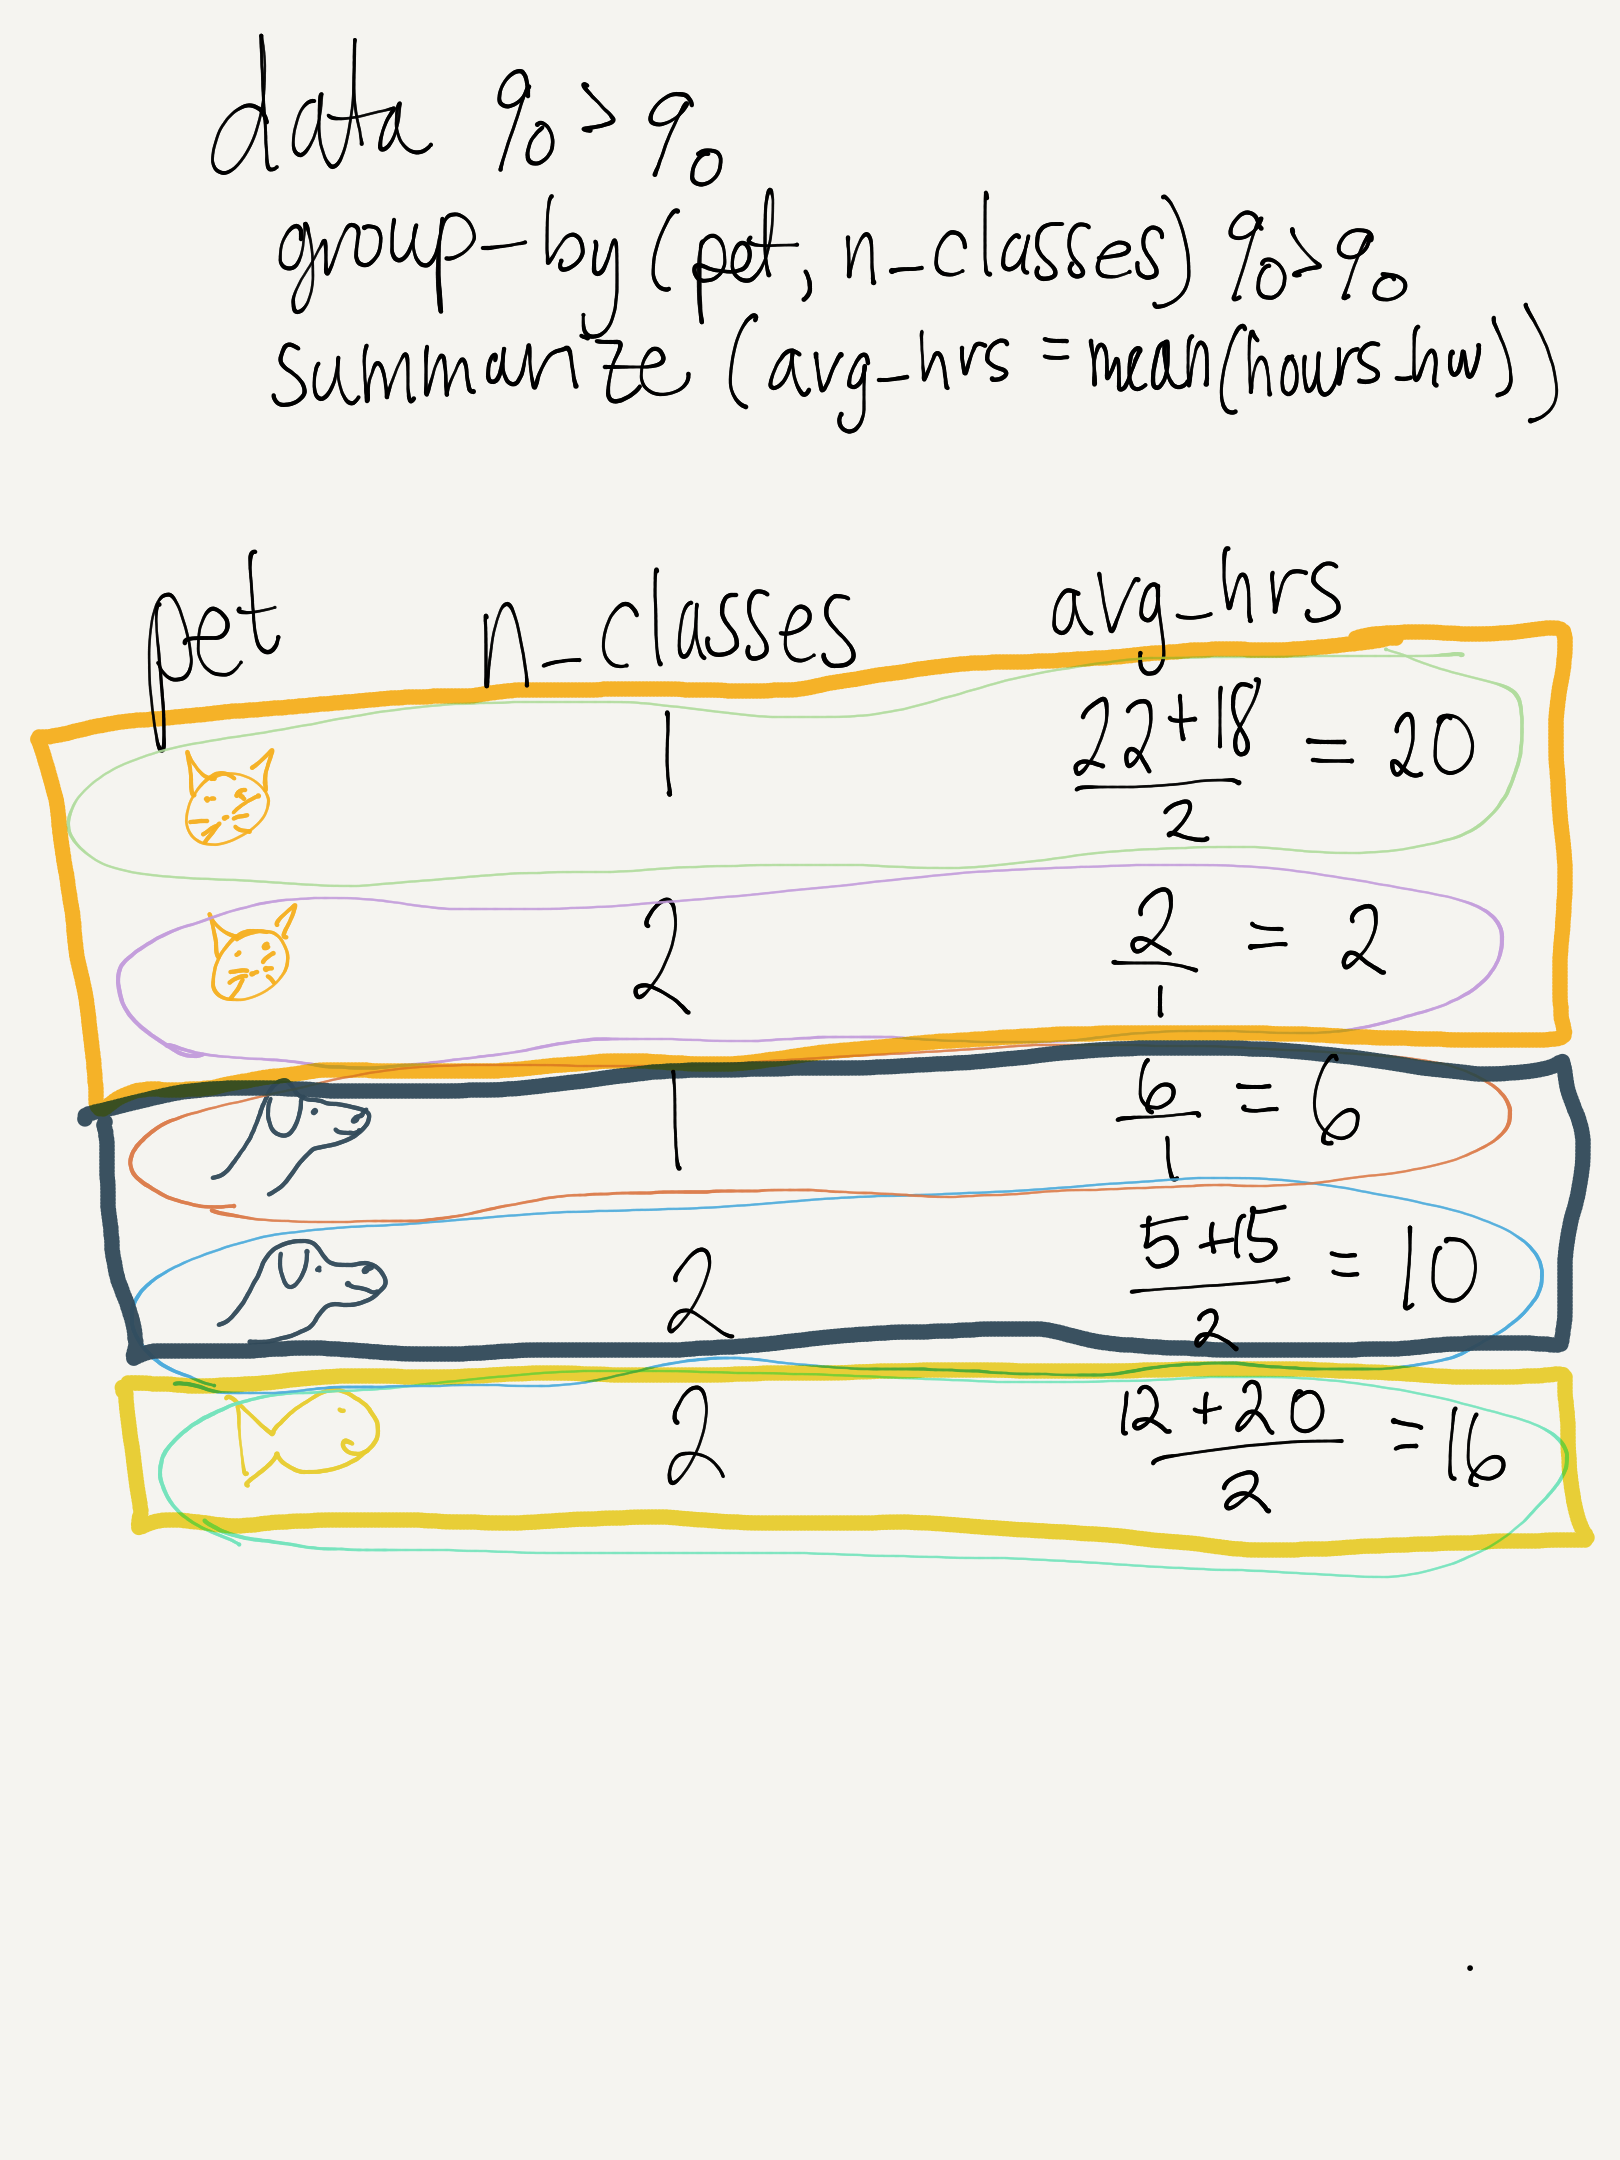 data %>%
group-by(pet, n_classes) %>%
summarize (avg_hrs = mean(hours_hw))
pet n_classes avg_hrs
1 22+18 / 2 = 20
2 2 / 1 = 2
1 6 / 1 = 6
2 5+15 / 2 = 10
2 12+20 / 2 = 16